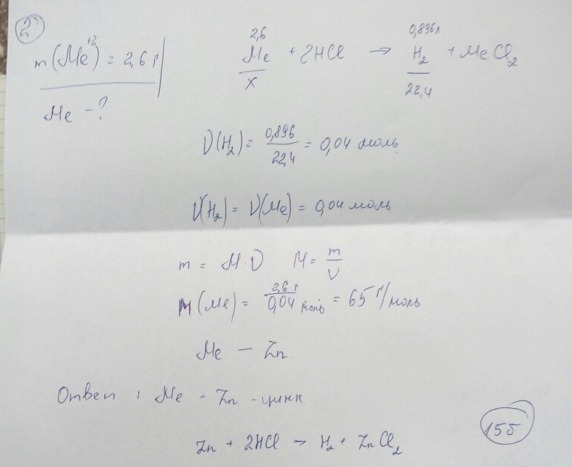 2
m(Me⁺²) = 2,6 г
Me - ?
2,6 0,896л
Me + 2HCl → H₂ + MeCl₂
x 22,4
ν(H₂) = 0,896/22,4 = 0,04 моль
ν(H₂) = ν(Me) = 0,04 моль
m = M·ν M = m/ν
M(Me) = 2,6 г/0,04 моль = 65 г/моль
Me — Zn
Ответ : Me - Zn - цинк
Zn + 2HCl → H₂ + ZnCl₂
15б